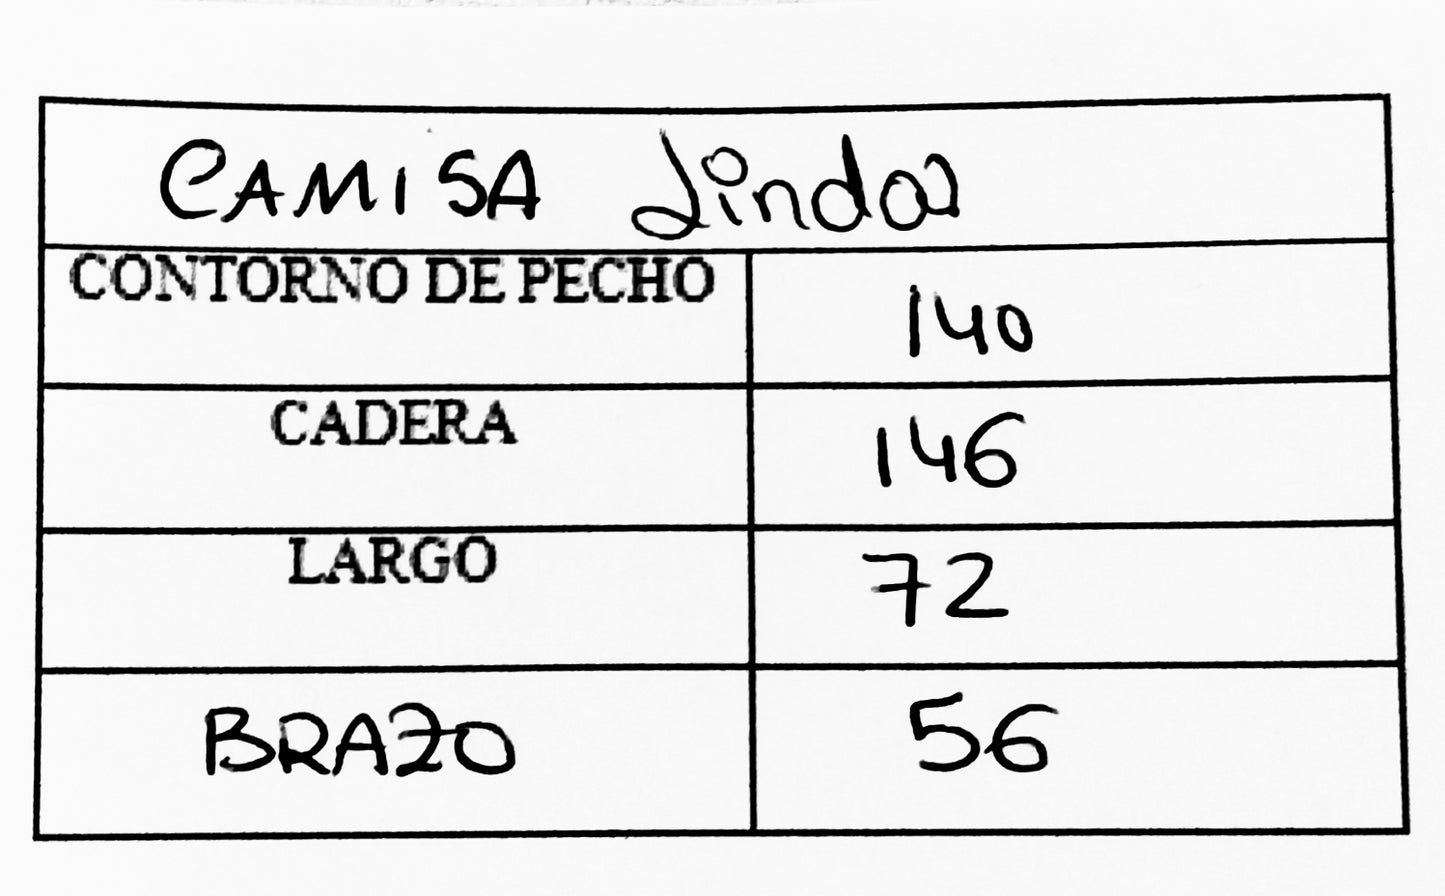 CAMISA Linda
CONTORNO DE PECHO 140
CADERA 146
LARGO 72
BRAZO 56